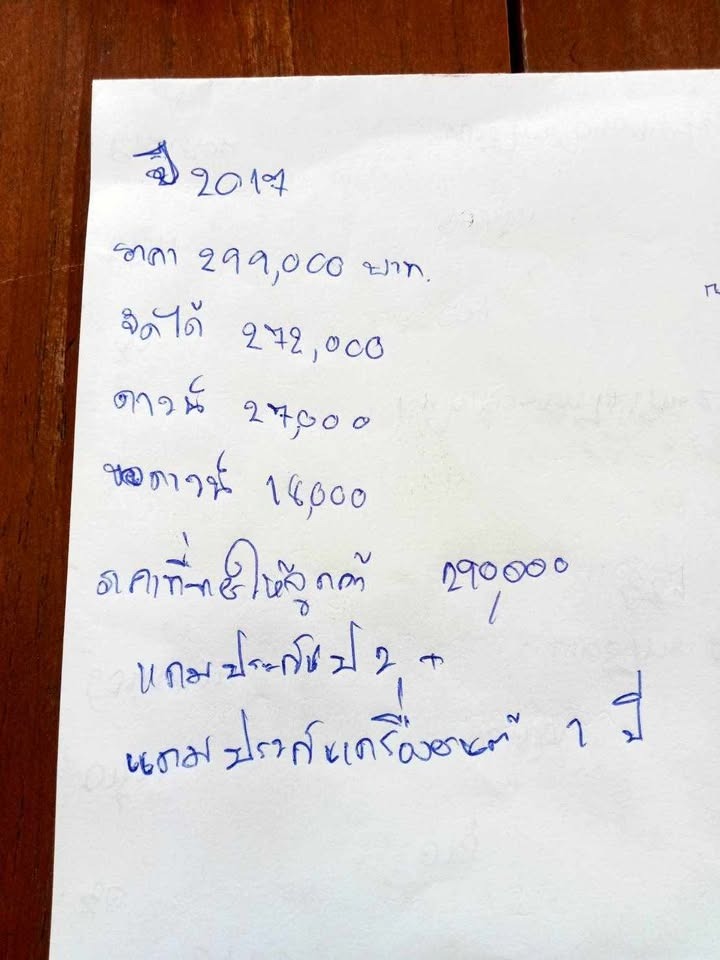 ปี 2017
ราคา 299,000 บาท.
จัดได้ 272,000
ดาวน์ 27,000
ขอดาวน์ 18,000
ราคาที่ให้ลูกค้า 290,000
แถมประกัน ป 2 +
แถมประกันเครื่องยนต์ 1 ปี